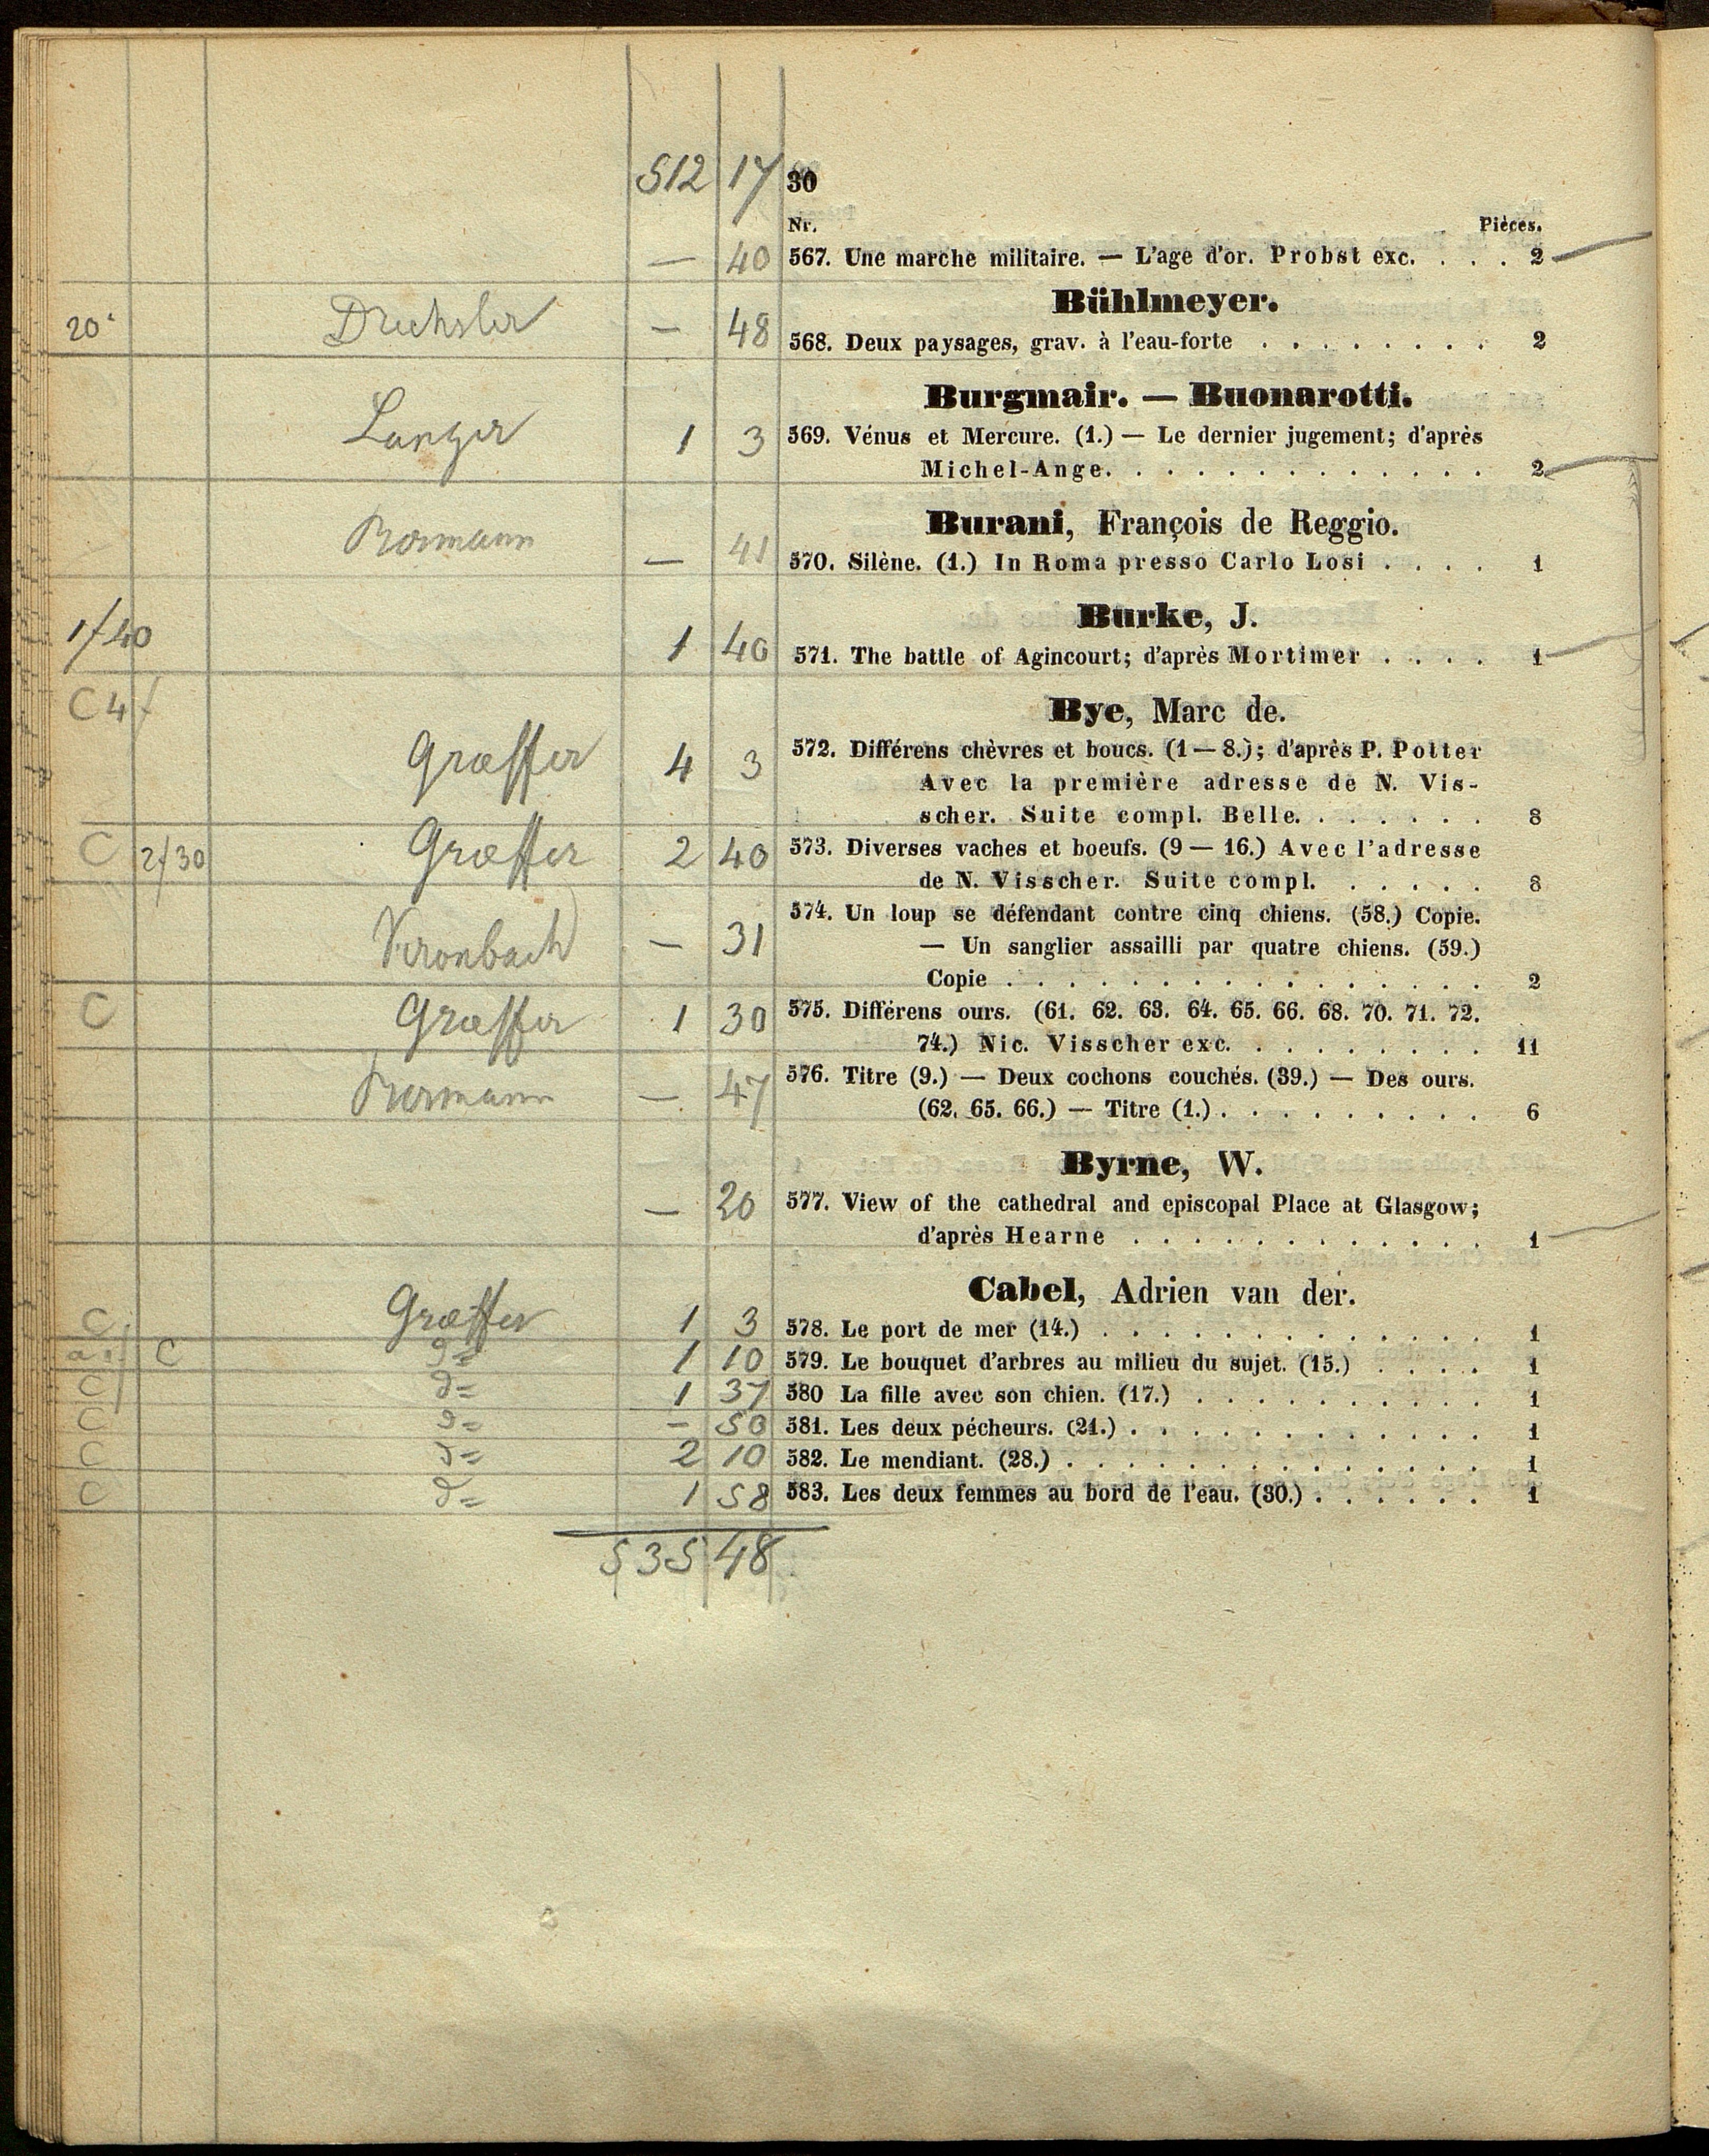 512 17 30
Nr. Pièces.
— 40 567. Une marche militaire. — L'age d'or. Probst exc. . . . 2
Bühlmeyer.
20 Drechsler — 48 568. Deux paysages, grav. à l'eau-forte . . . . . . . . 2
Burgmair. — Buonarotti.
Langer 1 3 569. Vénus et Mercure. (1.) — Le dernier jugement; d'après
Michel-Ange. . . . . . . . . . . . . . 2
Burani, François de Reggio.
— 41 570. Silène. (1.) In Roma presso Carlo Losi . . . . 1
Burke, J.
1f 40 1 40 571. The battle of Agincourt; d'après Mortimer . . . . 1
C 4f
Bye, Marc de.
Græffer 4 3 572. Différens chèvres et boucs. (1 — 8.); d'après P. Potter
Avec la première adresse de N. Vis-
scher. Suite compl. Belle. . . . . . . 8
C 2f 30 Græffer 2 40 573. Diverses vaches et boeufs. (9 — 16.) Avec l'adresse
de N. Visscher. Suite compl. . . . . . 8
— 31 574. Un loup se défendant contre cinq chiens. (58.) Copie.
— Un sanglier assailli par quatre chiens. (59.)
Copie . . . . . . . . . . . . . . . . 2
C Græffer 1 30 575. Différens ours. (61. 62. 63. 64. 65. 66. 68. 70. 71. 72.
74.) Nic. Visscher exc. . . . . . . . . 11
— 47 576. Titre (9.) — Deux cochons couchés. (39.) — Des ours.
(62. 65. 66.) — Titre (1.) . . . . . . . . . 6
Byrne, W.
— 20 577. View of the cathedral and episcopal Place at Glasgow;
d'après Hearne . . . . . . . . . . . . 1
Cabel, Adrien van der.
C Græffer 1 3 578. Le port de mer (14.) . . . . . . . . . . . . . 1
C d= 1 10 579. Le bouquet d'arbres au milieu du sujet. (15.) . . . . 1
C d= 1 37 580 La fille avec son chien. (17.) . . . . . . . . . . 1
C d= — 50 581. Les deux pécheurs. (21.) . . . . . . . . . . . . 1
C d= 2 10 582. Le mendiant. (28.) . . . . . . . . . . . . . . 1
C d= 1 58 583. Les deux femmes au bord de l'eau. (30.) . . . . . . 1
535 48